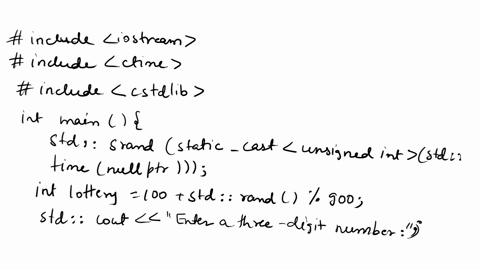 # include <iostream>
# include <ctime>
# include <cstdlib>
int main () {
std:: srand (static_cast < unsigned int > (std::
time (nullptr )));
int lottery = 100 + std:: rand() % 900;
std:: cout << "Enter a three-digit number:";